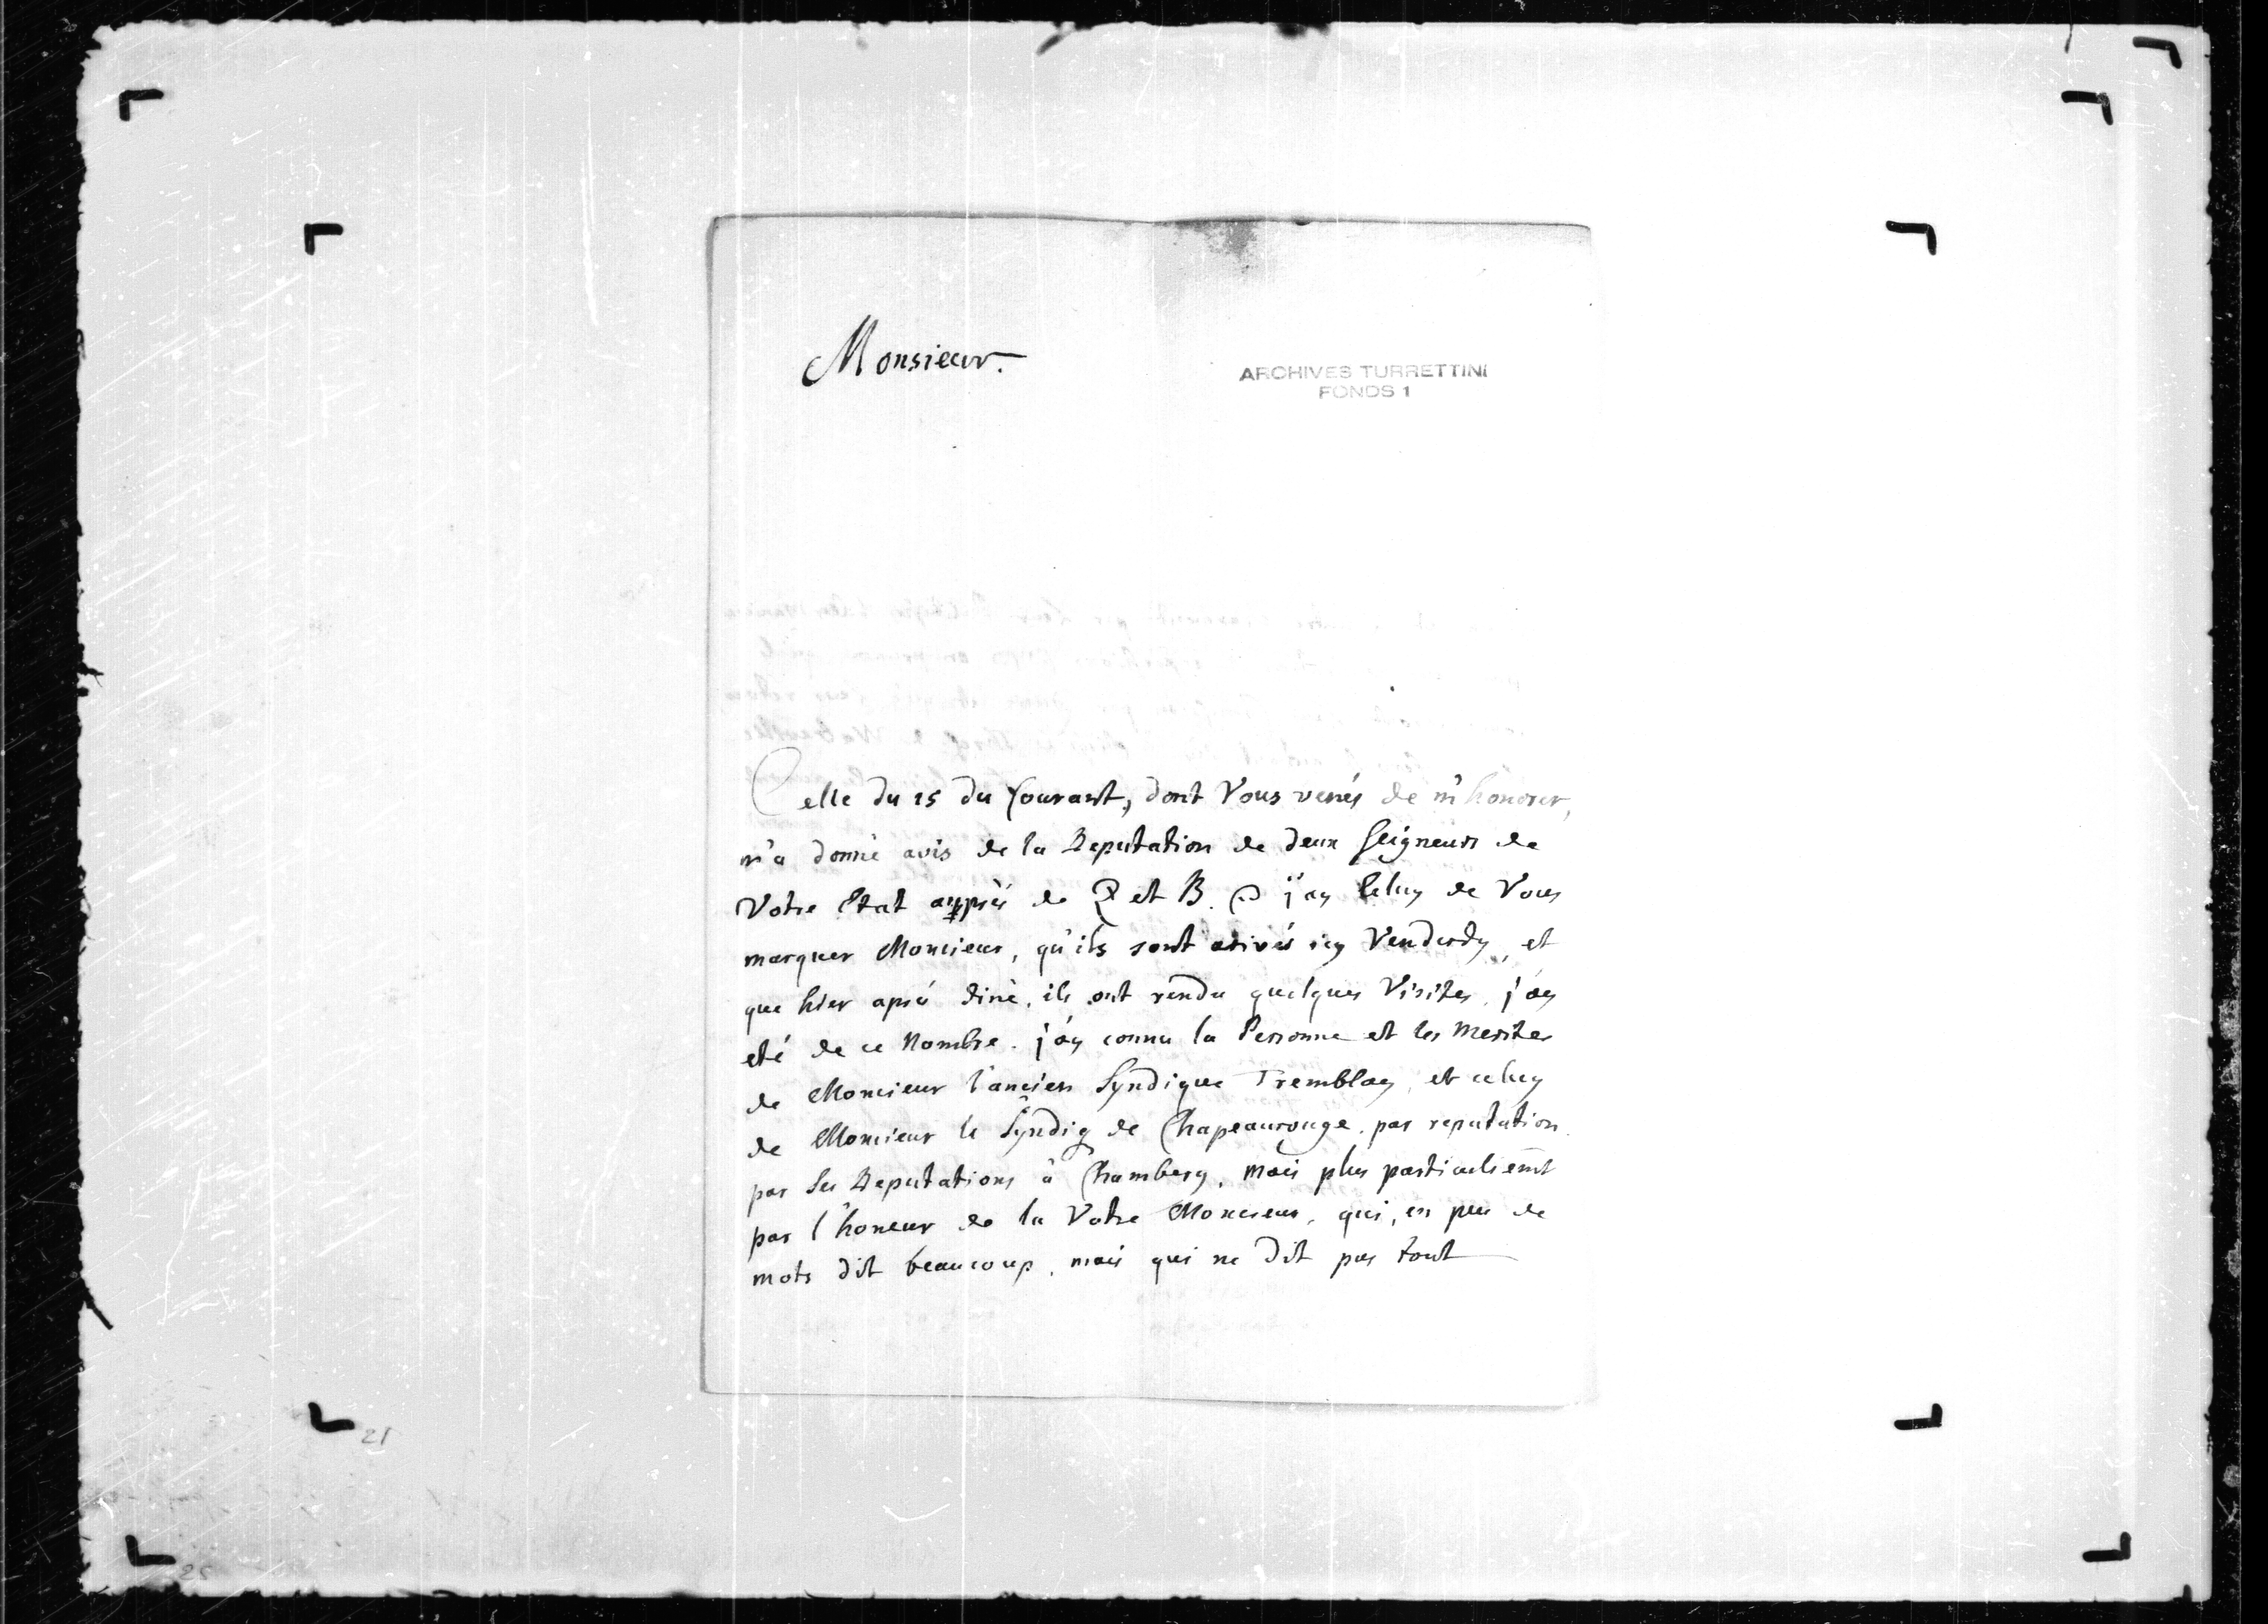 Monsieur.
ARCHIVES TURRETTINI
FONDS 1
Celle du 15 du Courant, dont Vous venés de m'honorer,
m'a donné avis de la Deputation de deux Seigneurs de
Votre Etat auprés de Z et B. j'ay de Vous
marquer Moncieur, qu'ils sont arivés icy Venderdy, et
que hier aprés diné, ils ont rendu quelques Visites, j'ay
eté de ce Nombre. j'ay connu la Personne et les Merites
de Moncieur l'ancien Syndique Tremblay, et celuy
de Moncieur le Syndiq de Chapeaurouge. par reputation.
par Ses Deputations à Chambery, mais plus particuliemt
par l'honeur de la Votre Moncieur, qui, en peu de
mots dit beaucoup, mais qui ne dit pas tout
21
25